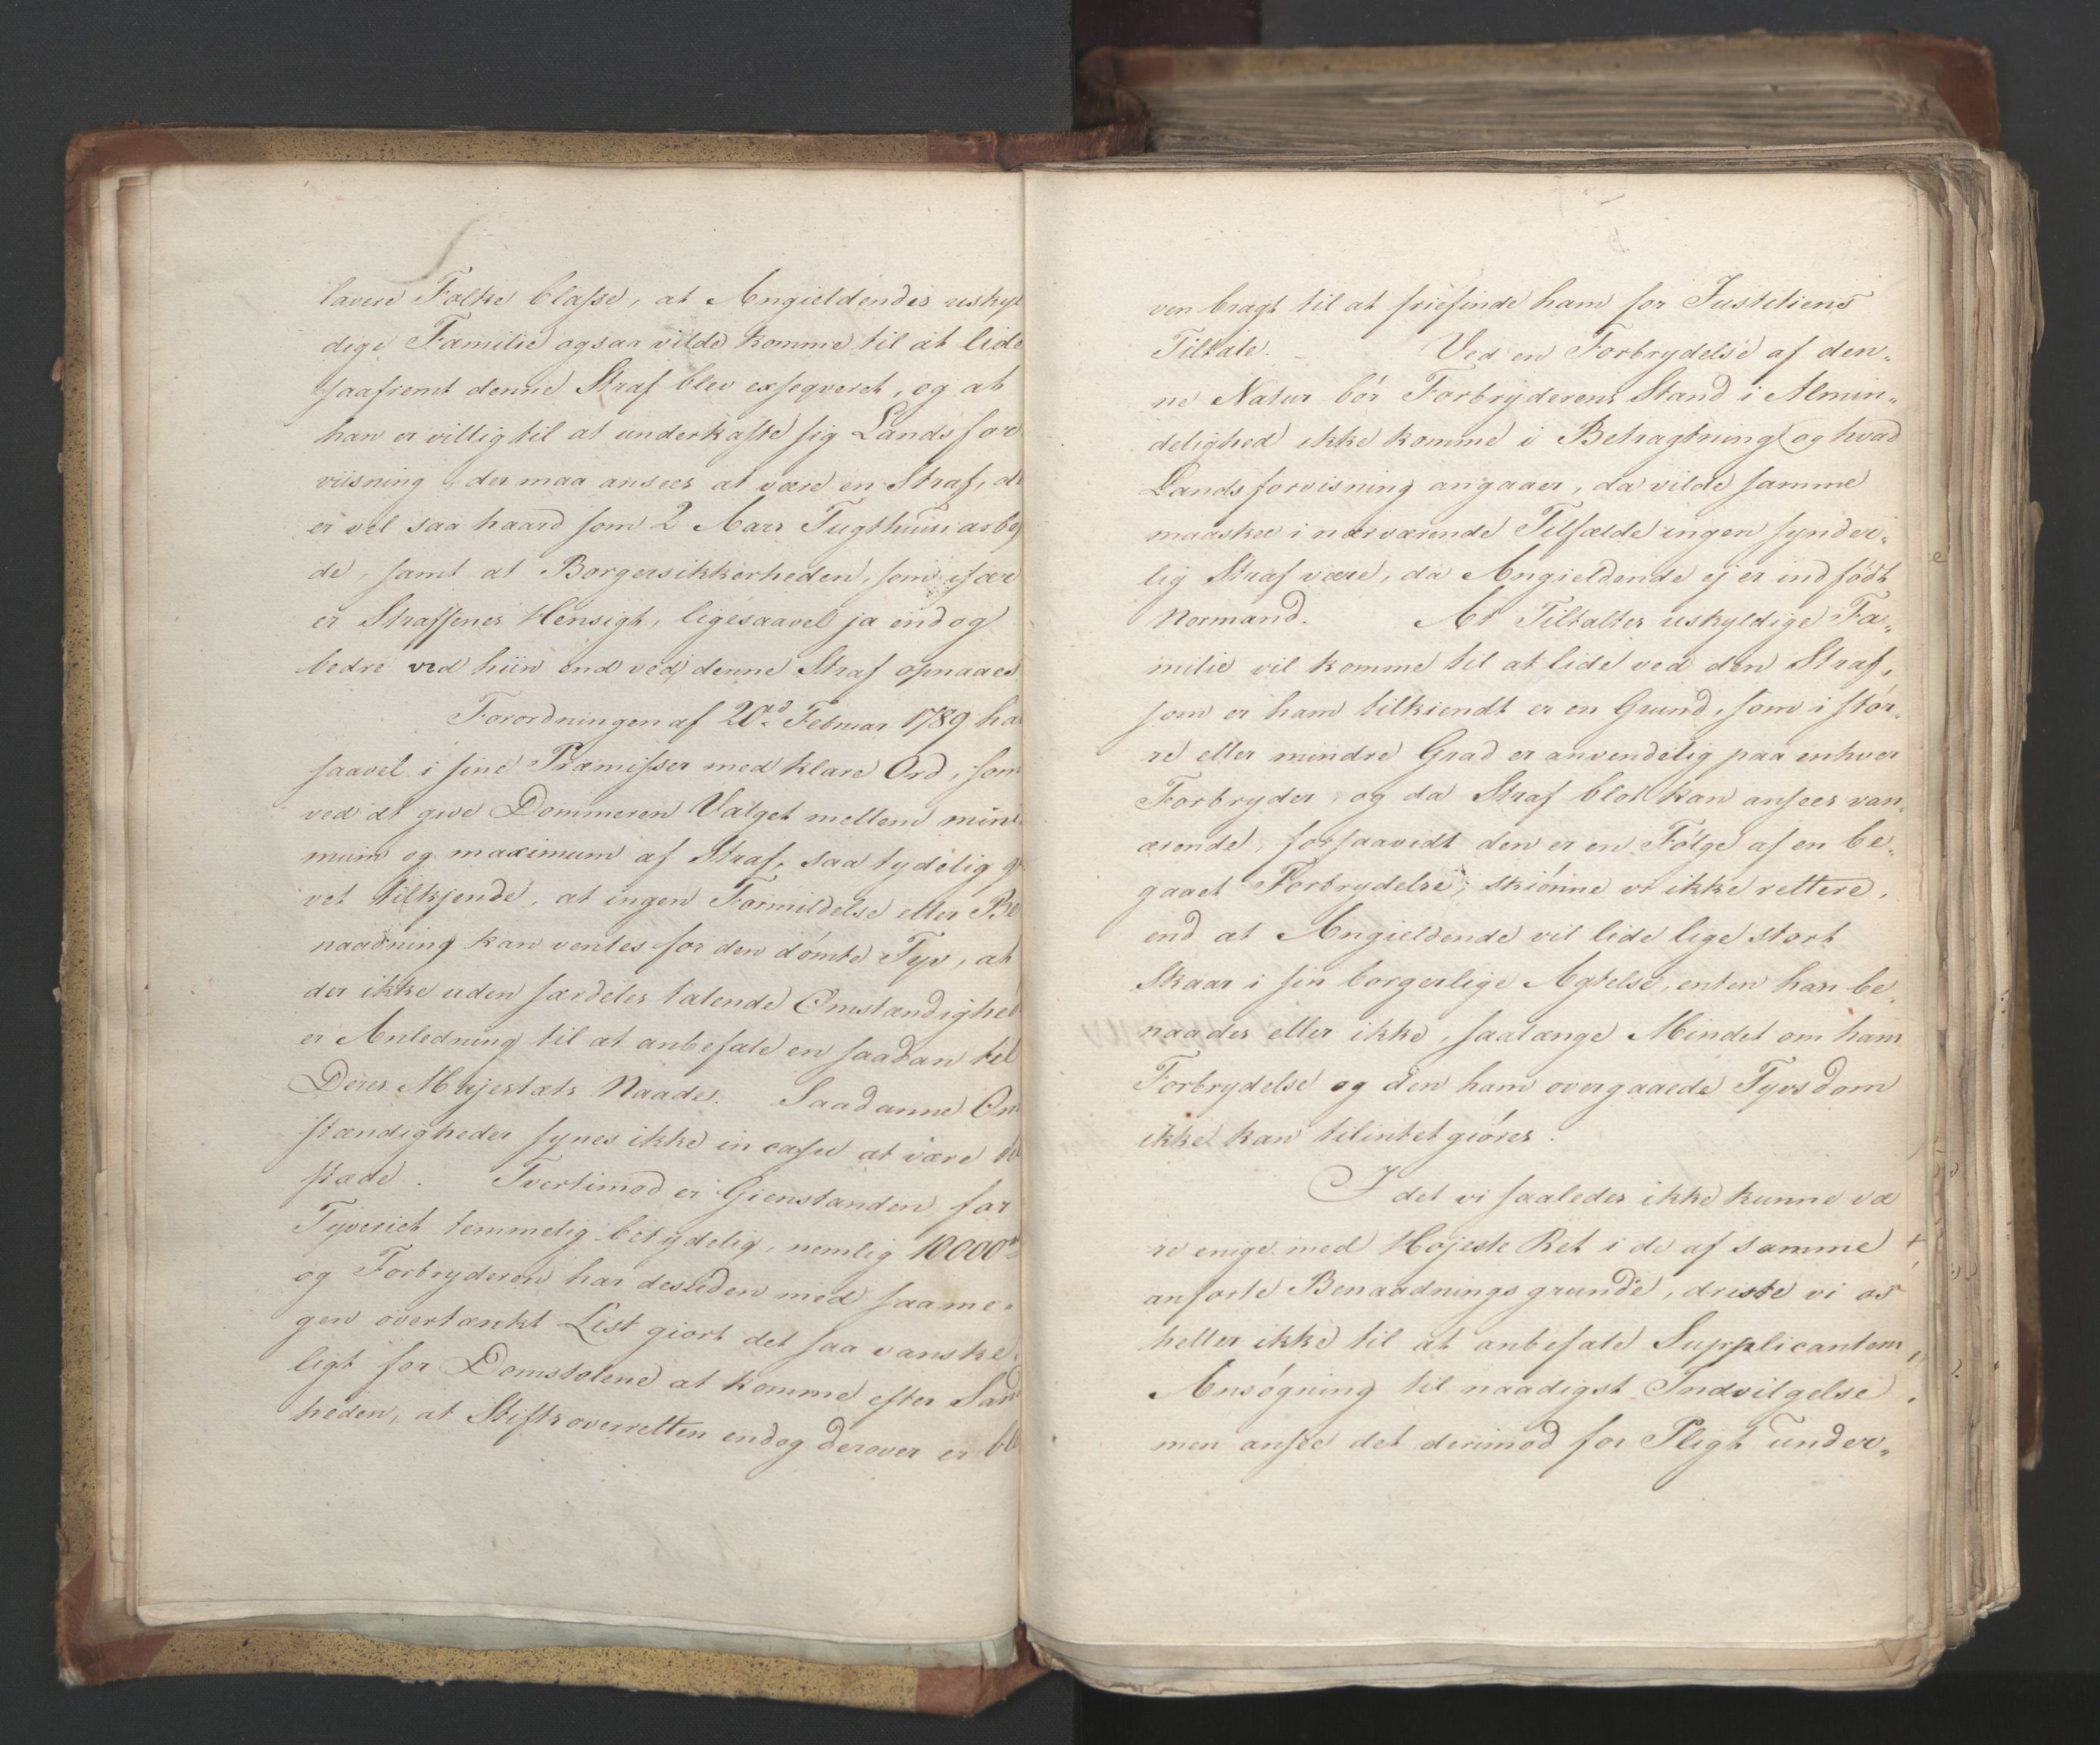 lavere Folke Classe, at Angieldendes uskyl
dige Familie ogsaa vilde komme til at lide
saafremt denne Straf blev exseqveret, og at
han er villig til at underkaste sig Lands for
viisning, der maa ansees at være en Straf, d
er vel saa haard som 2 Aars Tugthuusarbej
de, samt at Borgersikkerheden, som især
er Straffenes Hensigt, ligesaavel ja endog
bedre ved hiin end ved denne Straf opnaaes
Forordningen af 20de Februar 1789 ha
saavel i sine Præmisser med klare Ord, som
ved at give Dommeren Valget mellem mini
mum og maximum af Straf, saa tydelig g
vet tilkjende, at ingen Formildelse eller Be
naadning kan ventes for den dömte Tyv, at
der ikke uden særdeles talende Omstændighed
er Anledning til at anbefale en saadan til
Deres Majestæts Naade. Saadanne Om
stændigheder synes ikke in casu at være
stæde. Tvertimod er Gienstanden for
Tyveriet temmelig betydelig, nemlig 10000
og Forbryderen har desuden med saame-
gen overtænkt List giort det saa vanske-
ligt for Domstolene at komme efter Sand
heden, at Stiftsoverretten endog derover er ble
ven bragt til at friefinde ham for Justitiens
Tiltale. Ved en Forbrydelse af den-
ne Natur bör Forbryderens Stand i Almin-
delighed ikke komme i Betragtning og hvad
Landsforvisning angaaer, da vilde samme
maaskee i nærværende Tilfælde ingen synder-
lig Straf være, da Angieldende ej er indfödt
Normand. At Tiltaltes uskyldige Fa-
milie vil komme til at lide ved den Straf,
som er ham tilkiendt er en Grund, som i stör-
re eller mindre Grad er anvendelig paa enhver
Forbryder, og da Straf blot kan ansees van-
ærende, forsaavidt den er en Fölge af en be-
gaaet Forbrydelse, skiönne vi ikke rettere,
end at Angieldende vil lide lige stort
Skaar i sin borgerlige Agtelse, enten han be-
naades eller ikke, saalænge Mindet om hans
Forbrydelse og den ham overgaaede Tyvsdom
ikke kan tilintetgiöres.
I det vi saaledes ikke kunne væ
re enige med Höjeste Ret i de af samme
anförte Benaadningsgrunde, driste vi os
heller ikke til at anbefale Supplicantens
Ansögning til naadigst Indvilgelse,
men ansee det derimod for Pligt under-